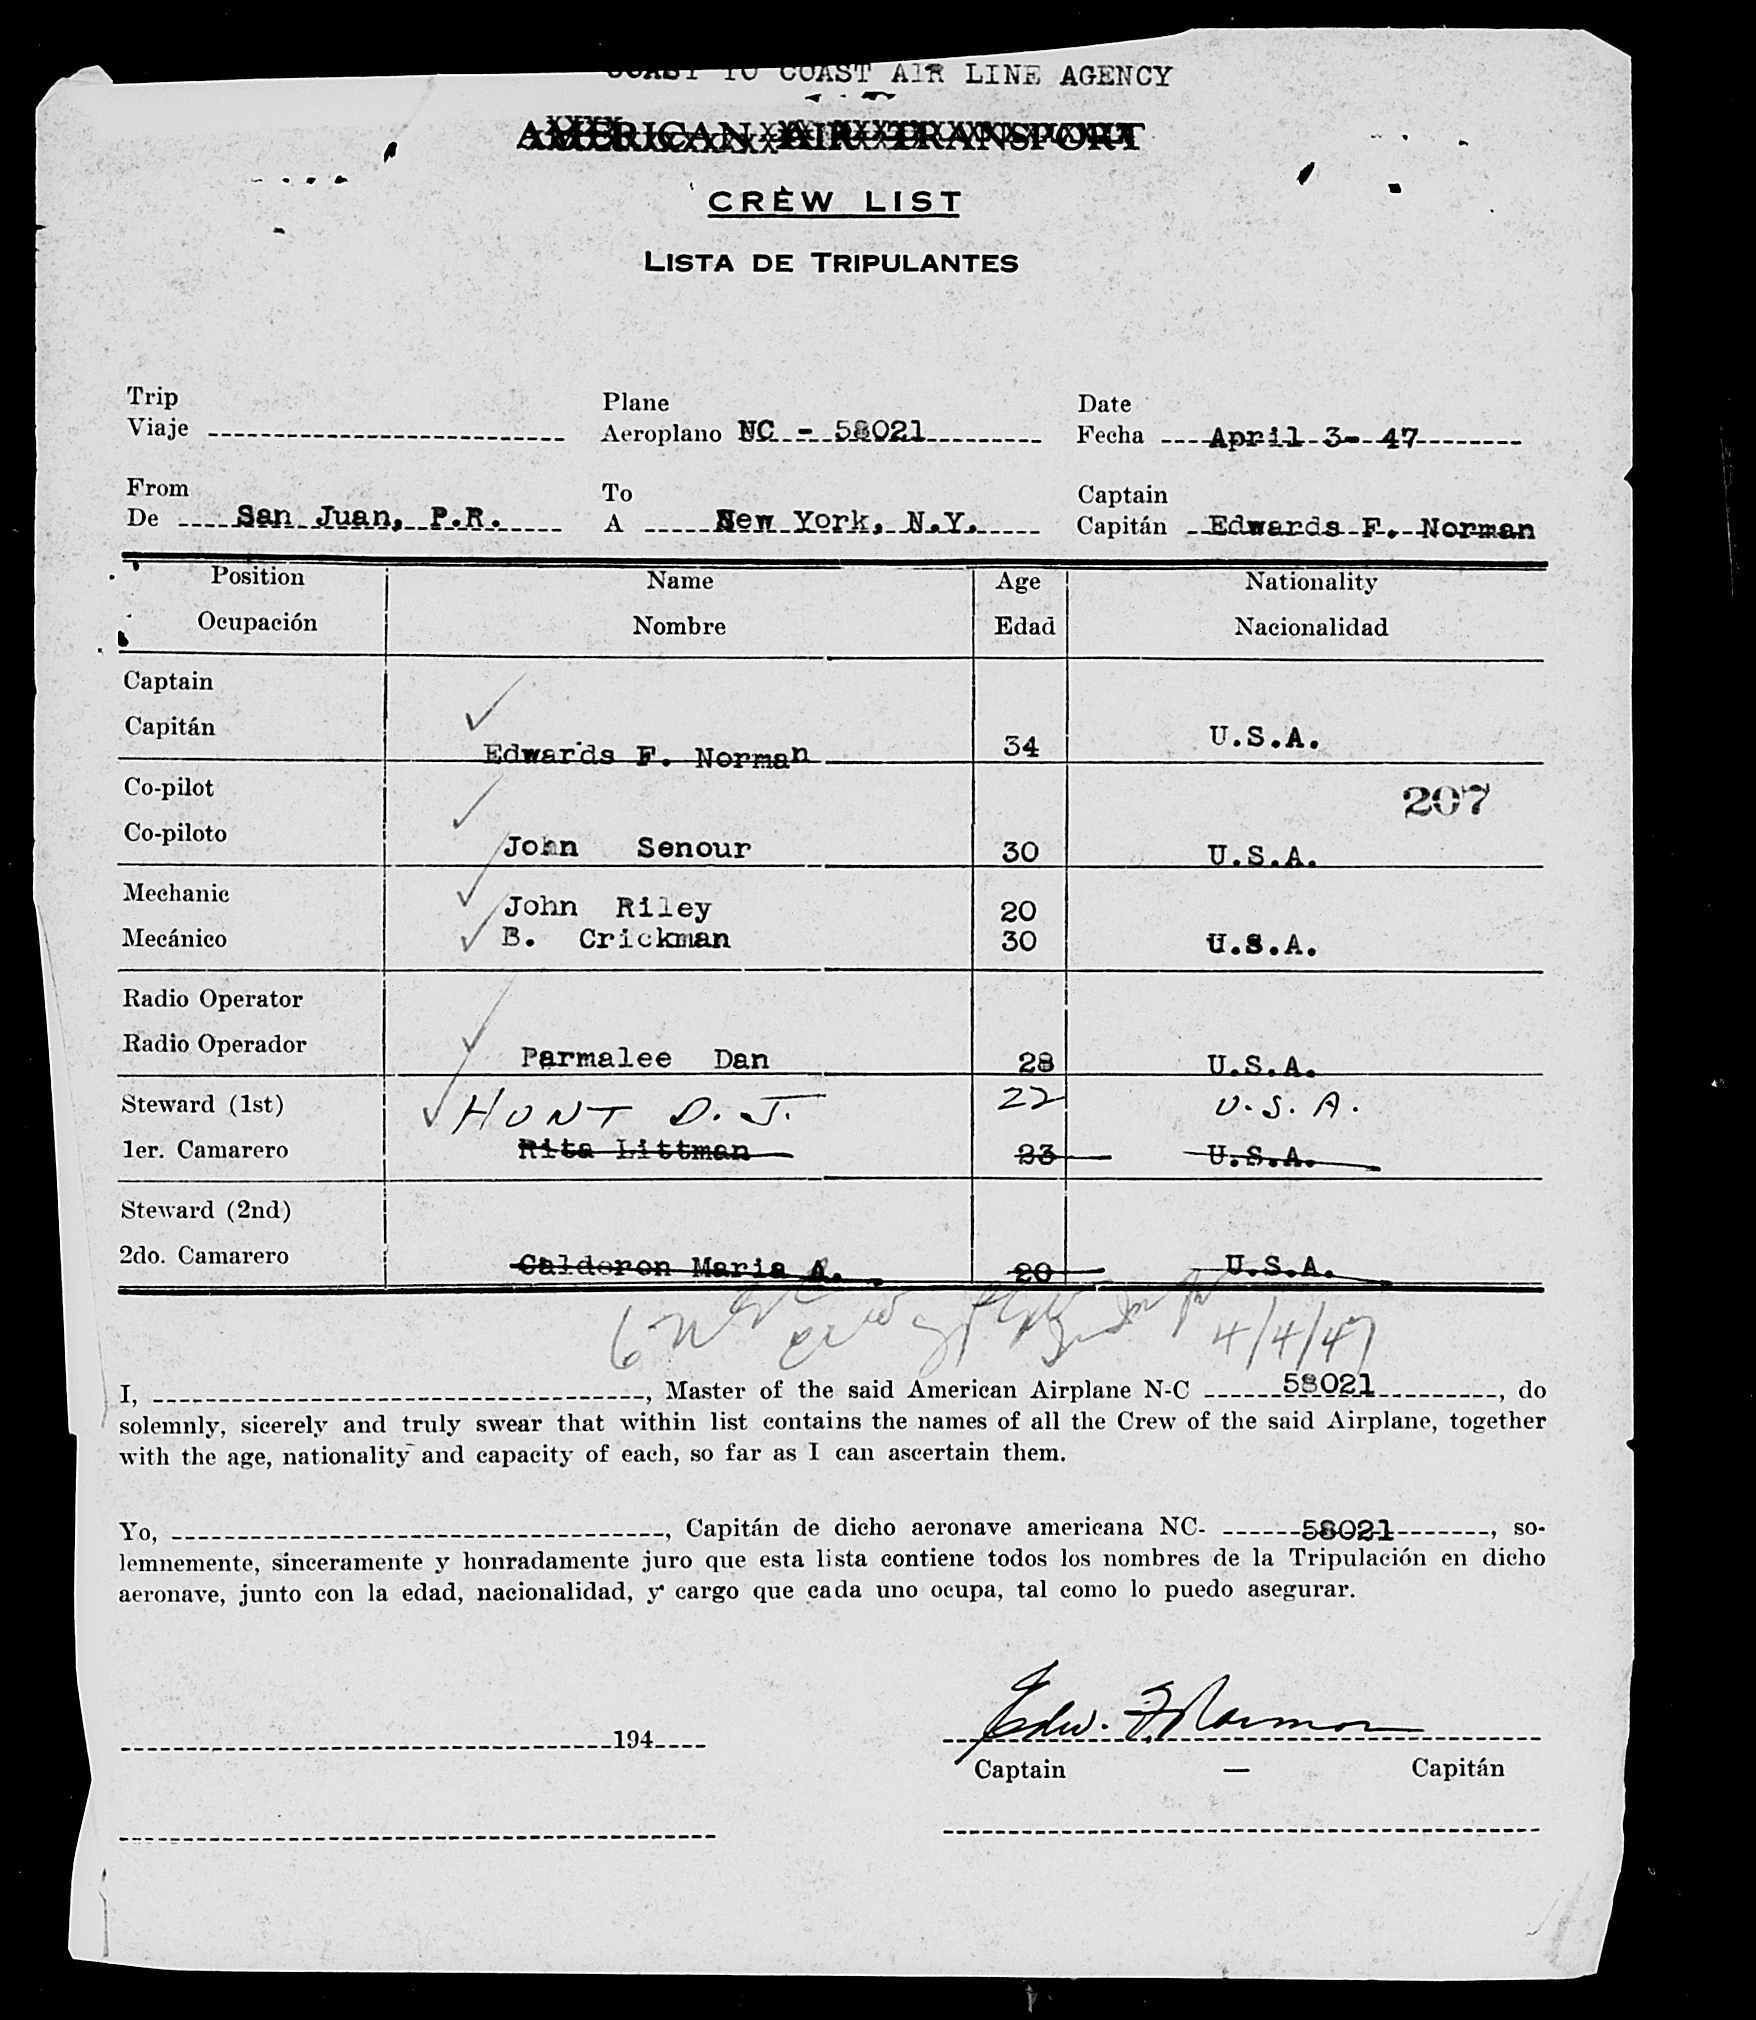 COAST TO COAST AIR LINE AGENCY
AMERICAN AIR TRANSPORT
CREW LIST
LISTA DE TRIPULANTES
Trip
Viaje
Plane
Aeroplano NC - 58021
Date
Fecha April 3- 47
From
De San Juan, P.R.
To
A New York, N.Y.
Captain
Capitán Edwards F. Norman
Position Name Age Nationality
Ocupación Nombre Edad Nacionalidad
Captain
Capitán Edwards F. Norman 34 U.S.A.
Co-pilot 207
Co-piloto John Senour 30 U.S.A.
Mechanic John Riley 20
Mecánico B. Crickman 30 U.S.A.
Radio Operator
Radio Operador Parmalee Dan 28 U.S.A.
Steward (1st) HUNT D. J. 22 U.S.A.
1er. Camarero Rita Littman 23 U.S.A.
Steward (2nd)
2do. Camarero Calderon Maria A. 20 U.S.A.
6 4/4/47
I, , Master of the said American Airplane N-C 58021, do
solemnly, sicerely and truly swear that within list contains the names of all the Crew of the said Airplane, together
with the age, nationality and capacity of each, so far as I can ascertain them.
Yo, , Capitán de dicho aeronave americana NC- 58021, so-
lemnemente, sinceramente y honradamente juro que esta lista contiene todos los nombres de la Tripulación en dicho
aeronave, junto con la edad, nacionalidad, y cargo que cada uno ocupa, tal como lo puedo asegurar.
194
Edw. F. Norman
Captain — Capitán